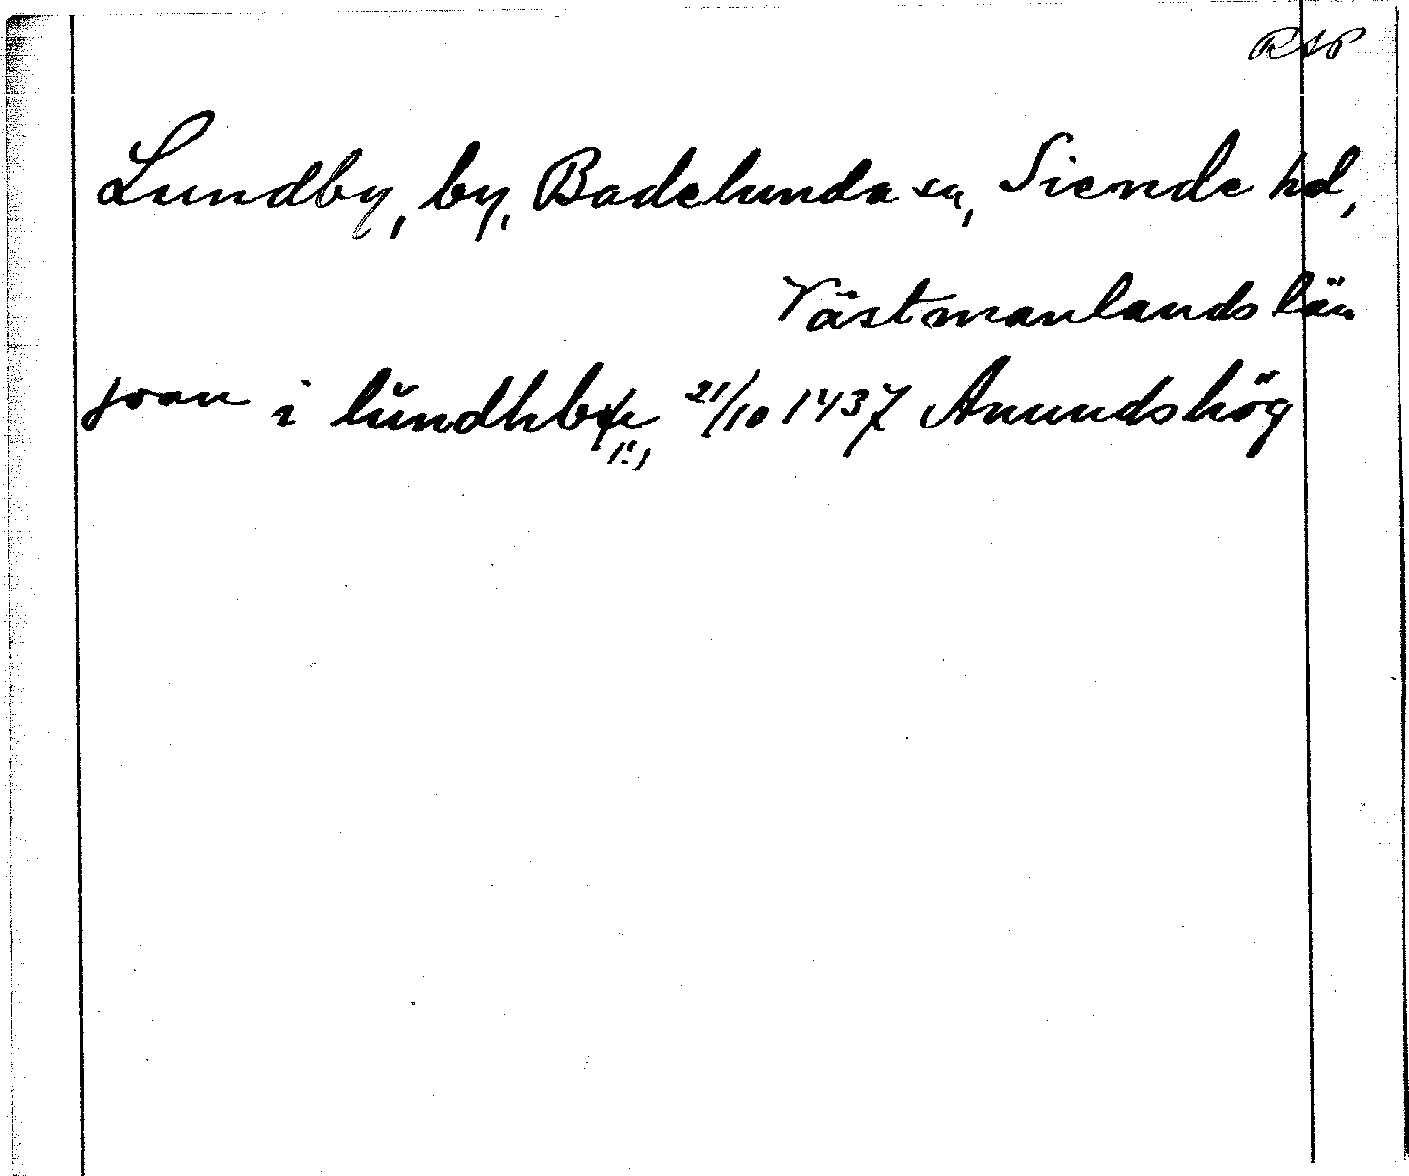 RAP
Lundby, by, Badelunda sn, Siende hd,
Västmanlands län
joan i lundhbye 21/10 1437 Anundshög
(!)